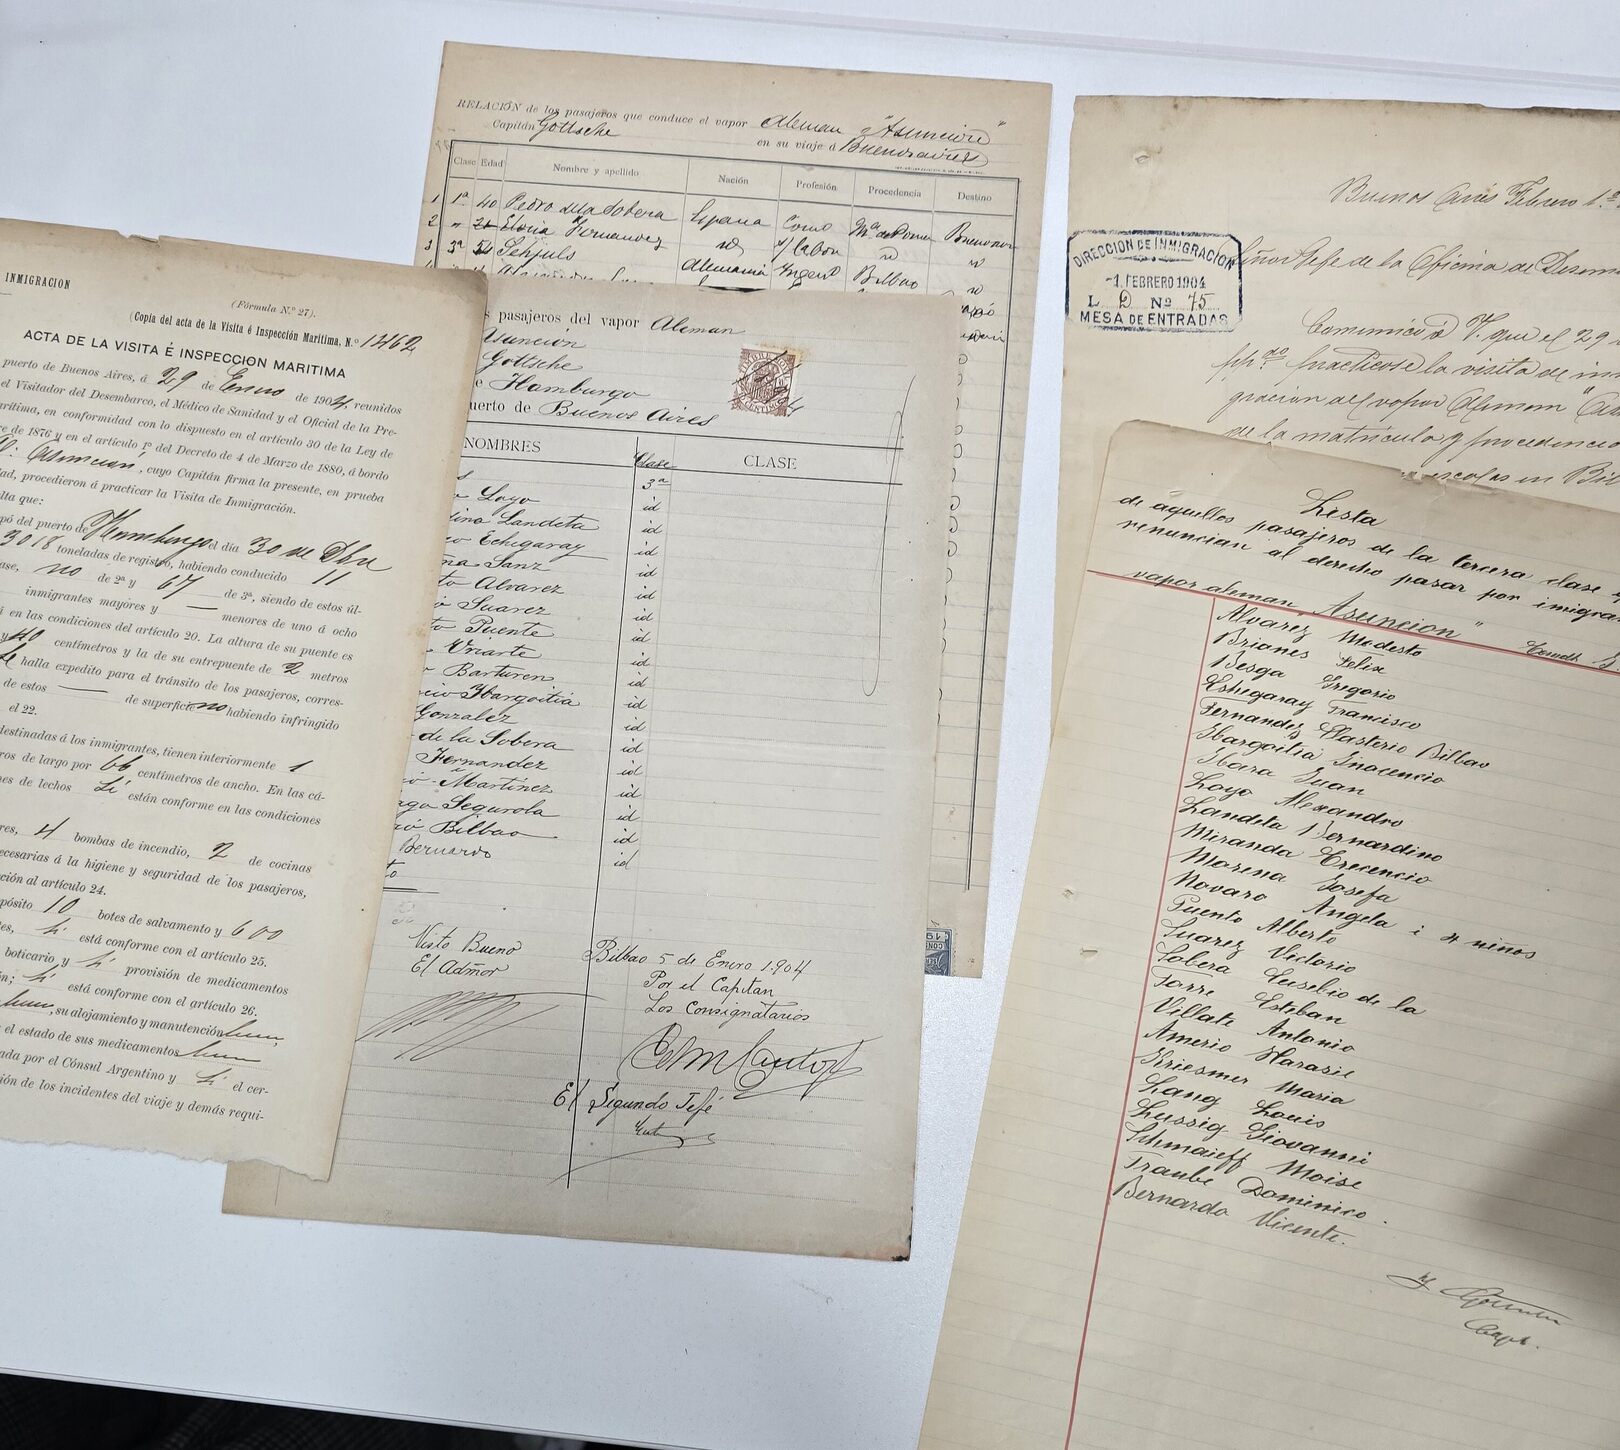 RELACIÓN de los pasajeros que conduce el vapor Aleman "Asuncion"
Capitán Gottsche en su viaje á Buenos aires
Clase Edad Nombre y apellido Nación Profesión Procedencia Destino
1 1ª 40 Pedro de la Sobera España
2 " Fernandez id
3 3ª Alemania Bilbao id
INMIGRACION
(Fórmula N.º 27).
(Copia del acta de la Visita é Inspección Marítima, N.º 1462
ACTA DE LA VISITA É INSPECCION MARITIMA
puerto de Buenos Aires, á 29 de Enero de 1904, reunidos
el Visitador del Desembarco, el Médico de Sanidad y el Oficial de la Pre-
arítima, en conformidad con lo dispuesto en el artículo 30 de la Ley de
re de 1876 y en el artículo 1º del Decreto de 4 de Marzo de 1880, á bordo
Asuncion, cuyo Capitán firma la presente, en prueba
dad, procedieron á practicar la Visita de Inmigración.
lta que:
pó del puerto de Hamburgo el día 30 de Dbre
3018 toneladas de registro, habiendo conducido 11
ase, no de 2ª y 67 de 3ª, siendo de estos úl-
inmigrantes mayores y — menores de uno á ocho
á en las condiciones del artículo 20. La altura de su puente es
y 40 centímetros y la de su entrepuente de 2 metros
halla expedito para el tránsito de los pasajeros, corres-
de estos — de superficie no habiendo infringido
el 22.
destinadas á los inmigrantes, tienen interiormente 1
ros de largo por 66 centímetros de ancho. En las cá-
nes de lechos Si están conforme en las condiciones
res, 4 bombas de incendio, 2 de cocinas
ecesarias á la higiene y seguridad de los pasajeros,
ción al artículo 24.
pósito 10 botes de salvamento y 600
tes, Si está conforme con el artículo 25.
boticario, y Si provisión de medicamentos
ón; Si está conforme con el artículo 26.
buen, su alojamiento y manutención buen,
y el estado de sus medicamentos buen
ada por el Cónsul Argentino y Si el cer-
ión de los incidentes del viaje y demás requi-
s pasajeros del vapor Aleman
Asunción
Gottsche
e Hamburgo
uerto de Buenos Aires
NOMBRES Clase CLASE
s 3ª
Loyo id
dino Landeta id
co Echegaray id
na Sanz id
to Alvarez id
io Suarez id
to Puente id
Uriarte id
Barturen id
cio Ibargoitia id
Gonzalez id
de la Sobera id
Fernandez id
io Martinez id
ago Segurola id
rió Bilbao id
Bernardo id
to
Visto Bueno
El Admor
Bilbao 5 de Enero 1.904
Por el Capitan
Los Consignatarios
El Segundo Jefe
Buenos Aires Febrero 1º
DIRECCIÓN DE INMIGRACIÓN
-1. FEBRERO 1904
L. D Nº 75
MESA DE ENTRADAS
Señor Gefe de la Oficina de Desem
Comunico á V. que el 29
ppdo practicose la visita de inmi
gración al vapor Aleman "Asu
de la matrícula y procedencia
escalas en Bil
Lista
de aquellos pasajeros de la tercera clase q
renuncian al derecho pasar por imigra
vapor aleman "Asuncion"
Alvarez Modesto
Briones Felix
Besga Gregorio
Eshegaray Francisco
Fernandez Plasterio Bilbao
Ibargoitia Inocencio
Ibara Juan
Loyo Alexandro
Landeta Bernardino
Miranda Crecencio
Morena Josefa
Novaro Angela i 4 niños
Puento Alberto
Suarez Victorio
Sobera Eusebio de la
Torre Esteban
Villate Antonio
Amerio Harasie
Kriesmer Maria
Lang Louis
Lussig Giovanni
Schmaieff Moise
Traube Dominico.
Bernardo Vicente.
Capt.